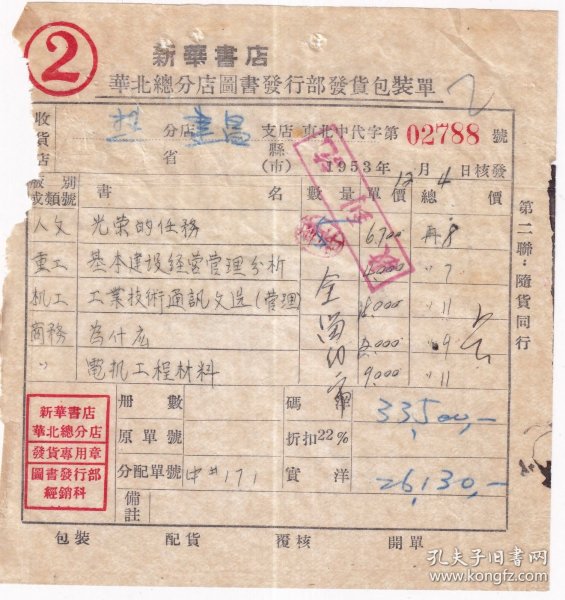 ②
新華書店
華北總分店圖書發行部發貨包裝單
2
收貨店
分店 建昌 支店 東北中代字第 02788 號
省 縣(市) 1953年12月4日核發
版別或類號 書名 數量 單價 總價
人文 光荣的任務 6.700 再8
重工 基本建设经营管理分析 〃7
机工 工業技術通訊文选(管理) 8.000 〃11
商務 為什么 〃9
〃 電机工程材料 9.000 〃11
第二聯:隨貨同行
冊數 碼洋 33,500,-
原單號 折扣22%
分配單號 中#171 實洋 26,130,-
備註
新華書店
華北總分店
發貨專用章
圖書發行部
經銷科
包裝 配貨 覆核 開單
孔夫子旧书网
www.kongfz.com